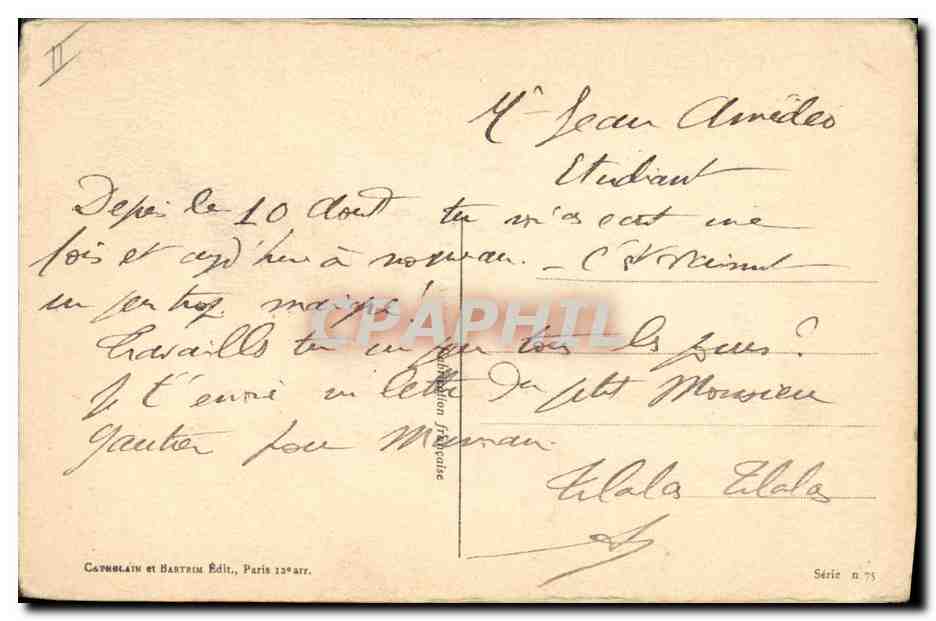 II
Mr Jean Amédéo
Etudiant
Depuis le 10 Aout tu m'as ecrit une
fois et aujd'hui à nouveau. – C'est vraiment
un peu trop maigre!
CPAPHIL
Travailles tu un peu tous les jours?
Je t'envoie un lettre du petit Monsieur
Gautier pour Maman.
Fabrication française
CATHELAIN et BARTRIM Édit., Paris 12e arr.
Série n 75